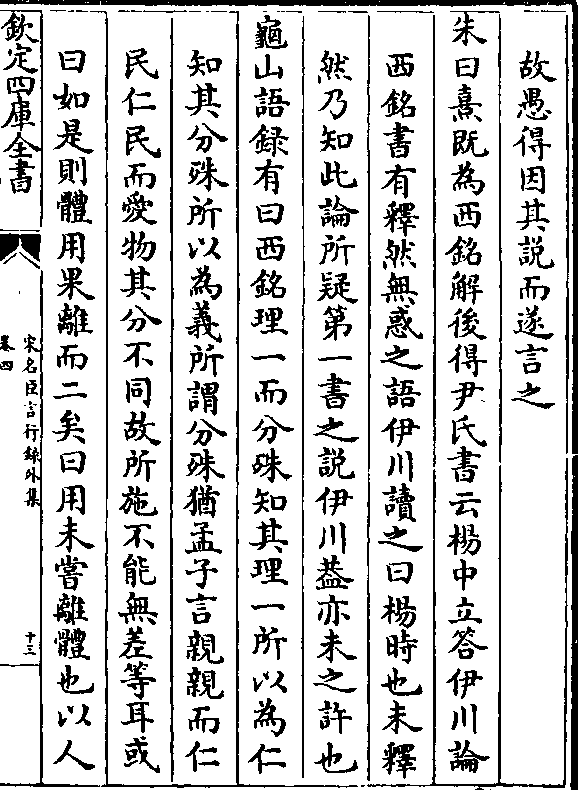 故愚得因其説而遂言之
朱曰熹既為西銘解後得尹氏書云楊中立答伊川論
西銘書有釋然無惑之語伊川讀之曰楊時也未釋
然乃知此論所疑第一書之説伊川葢亦未之許也
龜山語録有曰西銘理一而分殊知其理一所以為仁
知其分殊所以為義所謂分殊猶孟子言親親而仁
民仁民而愛物其分不同故所施不能無差等耳或
曰如是則體用果離而二矣曰用未嘗離體也以人
欽定四庫全書
宋名臣言行録外集
卷四
十三